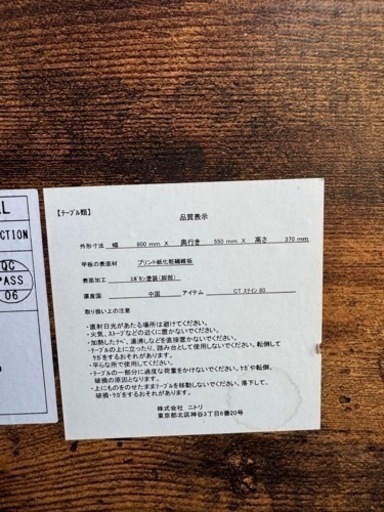 LL
CTION
QC
PASS
06
【テーブル類】
品質表示
外形寸法 幅 800 mm X 奥行き 550 mm X 高さ 370 mm
甲板の表面材 プリント紙化粧繊維板
表面加工 ｴﾎﾟｷｼ塗装(脚部)
原産国 中国 アイテム CT ステイン 80
取り扱い上の注意
・直射日光があたる場所は避けてください。
・火気、ストーブなどの近くに置かないでください。
・加熱したﾅﾍﾞ、湯沸しなどを直接置かないでください。
・テーブルの上に立ったり、踏み台として使用しないでください。転倒して
ｹｶﾞをするおそれがあります。
・平らな所で使用してください。
・テーブルの一部分に過度な荷重をかけないでください。ケガや転倒、
破損の原因となります。
・上にものをのせたままテーブルを移動しないでください。落下して、
破損・ケガをするおそれがあります。
株式会社 ニトリ
東京都北区神谷3丁目6番20号